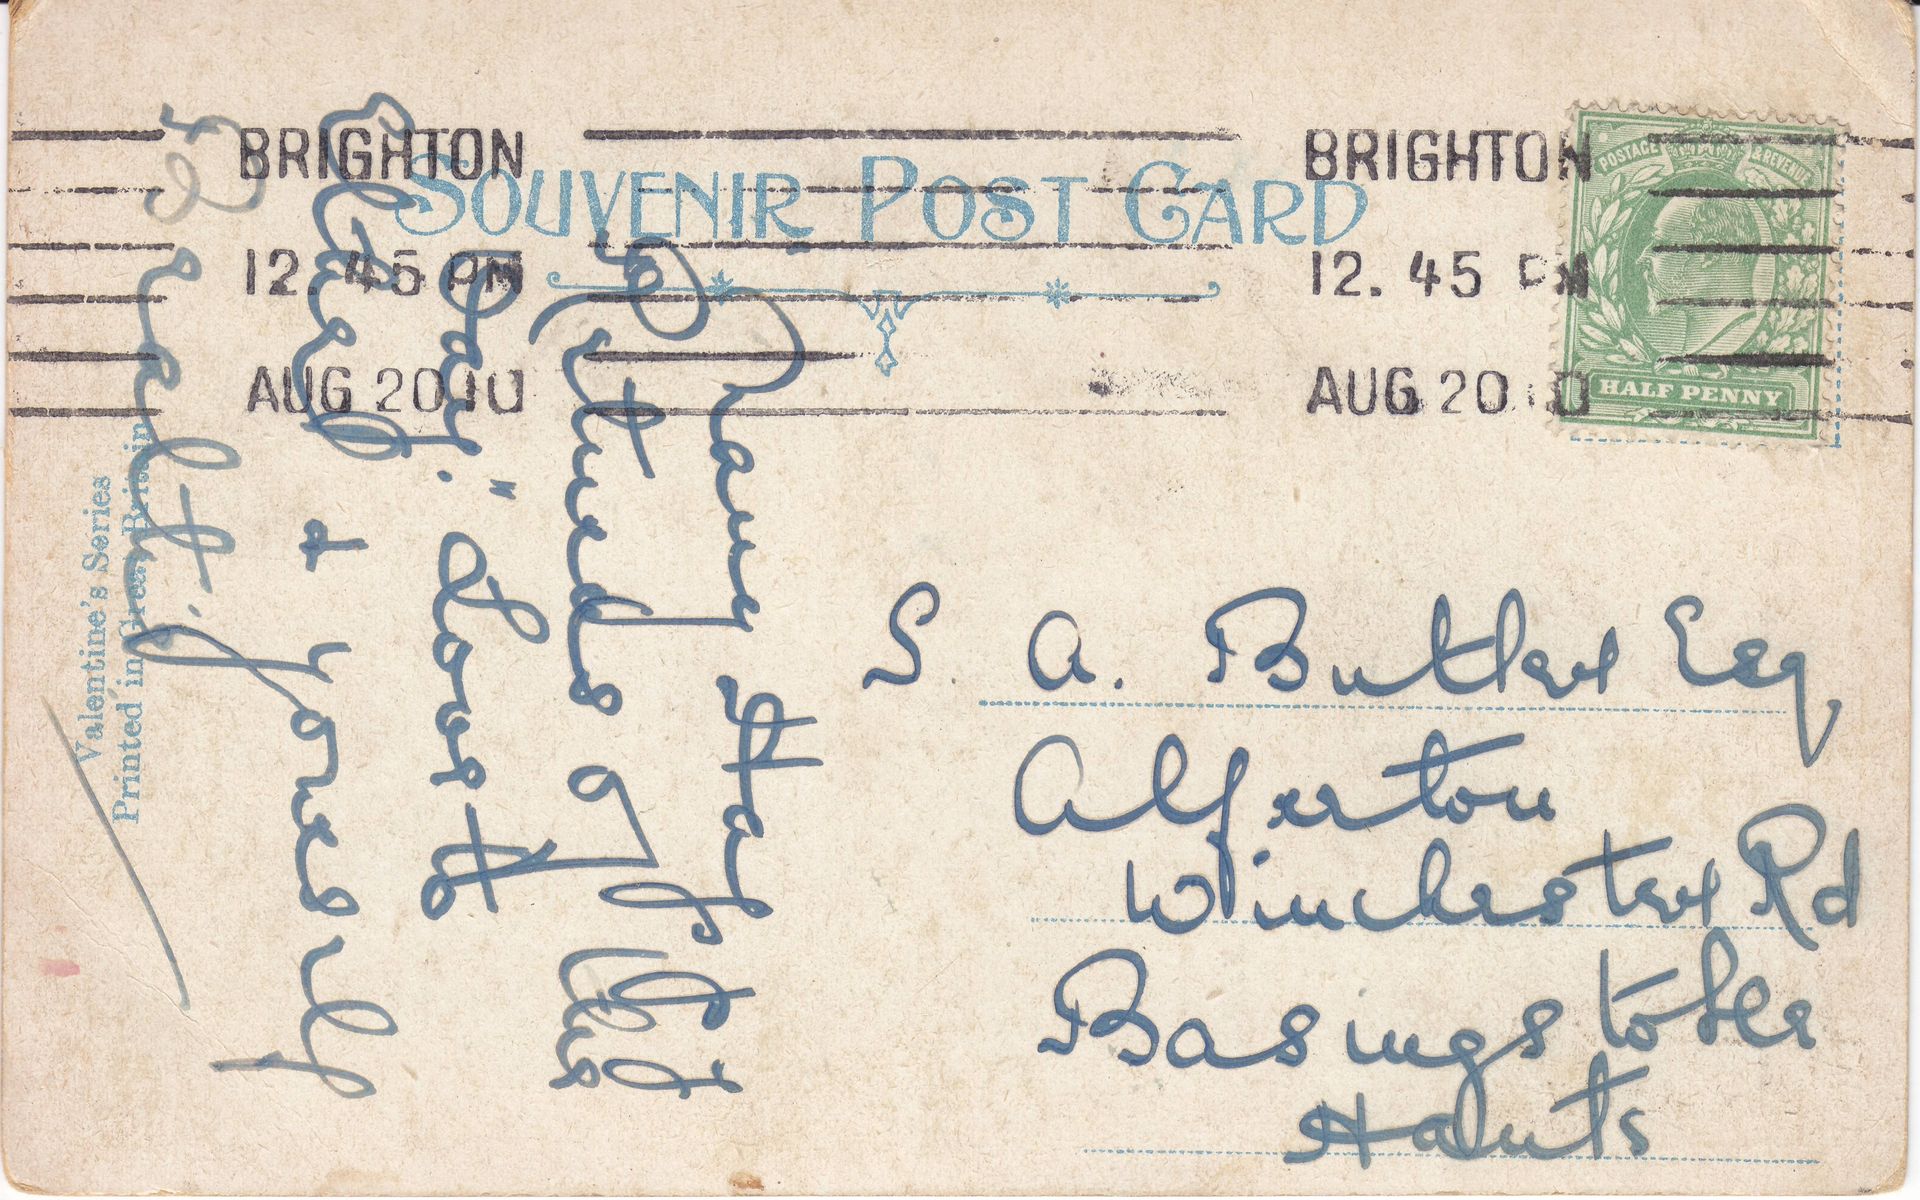 SOUVENIR POST CARD
BRIGHTON
12.45 PM
AUG 20 10
BRIGHTON
12.45 PM
AUG 20 10
POSTAGE & REVENUE
HALF PENNY
Many
Returns of the
Day." Love to
& yourself
S. A. Butler Esq
Alferton
Winchester Rd
Basingstoke
Hants
Valentine's Series
Printed in Great Britain